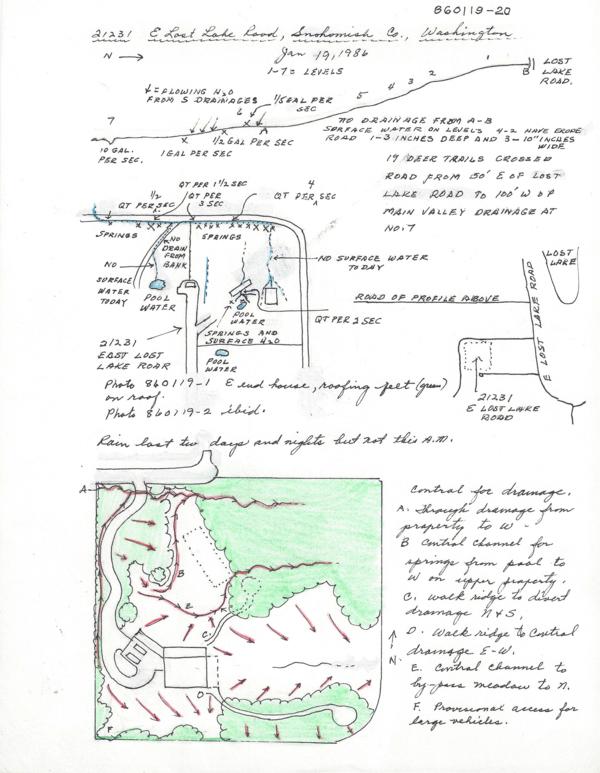 860119-20
21231 E Lost Lake Road, Snohomish Co., Washington
N → Jan 19, 1986
1-7 = LEVELS
1
B
LOST
LAKE
ROAD.
2
3
4
5
6
7
↓ = FLOWING H2O
FROM S DRAINAGES
1/5 GAL PER
SEC
A
10 GAL.
PER SEC.
1 GAL PER SEC
1/2 GAL PER SEC
NO DRAINAGE FROM A-B
SURFACE WATER ON LEVELS 4-2 HAVE ERODE
ROAD 1-3 INCHES DEEP AND 3-10" INCHES
WIDE
17 DEER TRAILS CROSSED
ROAD FROM 150' E OF LOST
LAKE ROAD TO 100' W OF
MAIN VALLEY DRAINAGE AT
NO. 7
1/2
QT PER SEC
QT PER 1 1/2 SEC
QT PER
3 SEC
4
QT PER SEC
SPRINGS
NO
DRAIN
FROM
BANK
SPRINGS
NO
SURFACE
WATER
TODAY
POOL
WATER
NO SURFACE WATER
TODAY
POOL
WATER
QT PER 2 SEC
SPRINGS AND
SURFACE H2O
POOL
WATER
21231
EAST LOST
LAKE ROAD
LOST
LAKE
ROAD OF PROFILE ABOVE
E LOST LAKE ROAD
21231
E LOST LAKE
ROAD
Photo 860119-1 E end house, roofing felt (green)
on roof.
Photo 860119-2 ibid.
Rain last two days and nights but not this A.M.
A
B
E
C
D
F
N
Control for drainage.
A. Through drainage from
property to W
B Control channel for
springs from pool to
W on upper property.
C. walk ridge to divert
drainage N & S,
D. Walk ridge to Control
drainage E-W.
E. Control channel to
by-pass meadow to N.
F. Provisional access for
large vehicles.